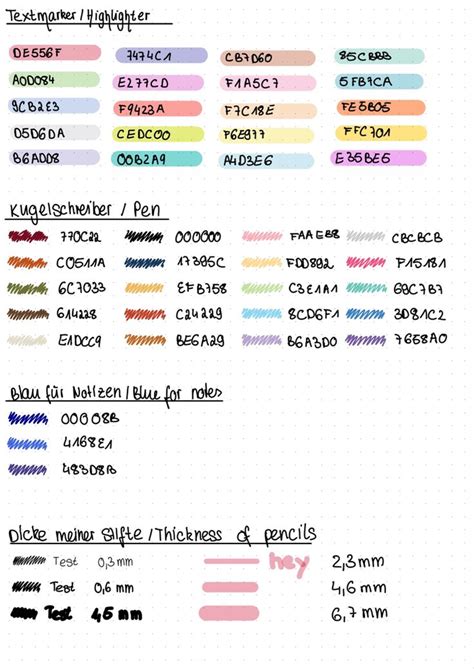 Textmarker/Highlighter
DE556F 7474C1 CB7D60 85CBBB
A0D084 E277CD F1A5C7 5FB7CA
9CB2E3 F9423A F7C18E FE5B05
D5D6DA CEDC00 F6E977 FFC701
B6ADD8 00B2A9 A4D3E6 E35BE5
Kugelschreiber / Pen
770C22 000000 FAAEB8 CBCBCB
C0511A 17395C FDD892 F15181
6C7033 EFB758 C3E1A1 69C7B7
614228 C24229 8CD6F1 3D81C2
E1DCC9 BE6A29 B6A3D0 7658A0
Blau für Notizen/Blue for notes
00008B
4168E1
483D8B
Dicke meiner Stifte/Thickness of pencils
Test 0,3mm hey 2,3mm
Test 0,6mm 4,6mm
Test 45mm 6,7mm